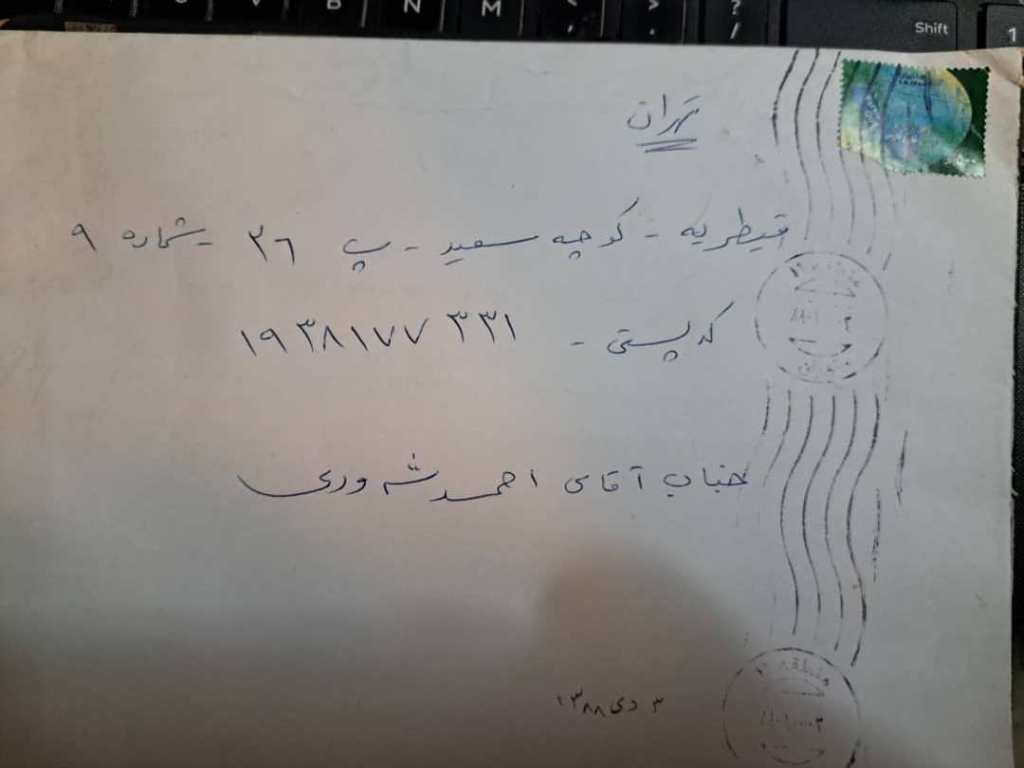 تهران
قیطریه - کوچه سعید - پ ۲۶ - شماره ۹
کد پستی - ۱۹۳۸۱۷۷۳۳۱
جناب آقای احمد
۳ دی ۱۳۸۸
Shift
B N M